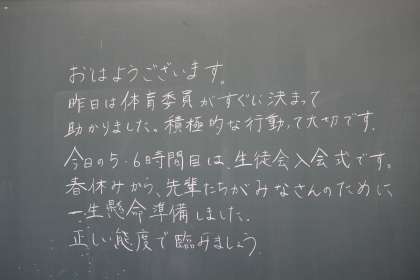 おはようございます。
昨日は体育委員がすぐに決まって
助かりました。積極的な行動って大切です。
今日の5・6時間目は、生徒会入会式です。
春休みから、先輩たちがみなさんのために
一生懸命準備しました。
正しい態度で臨みましょう